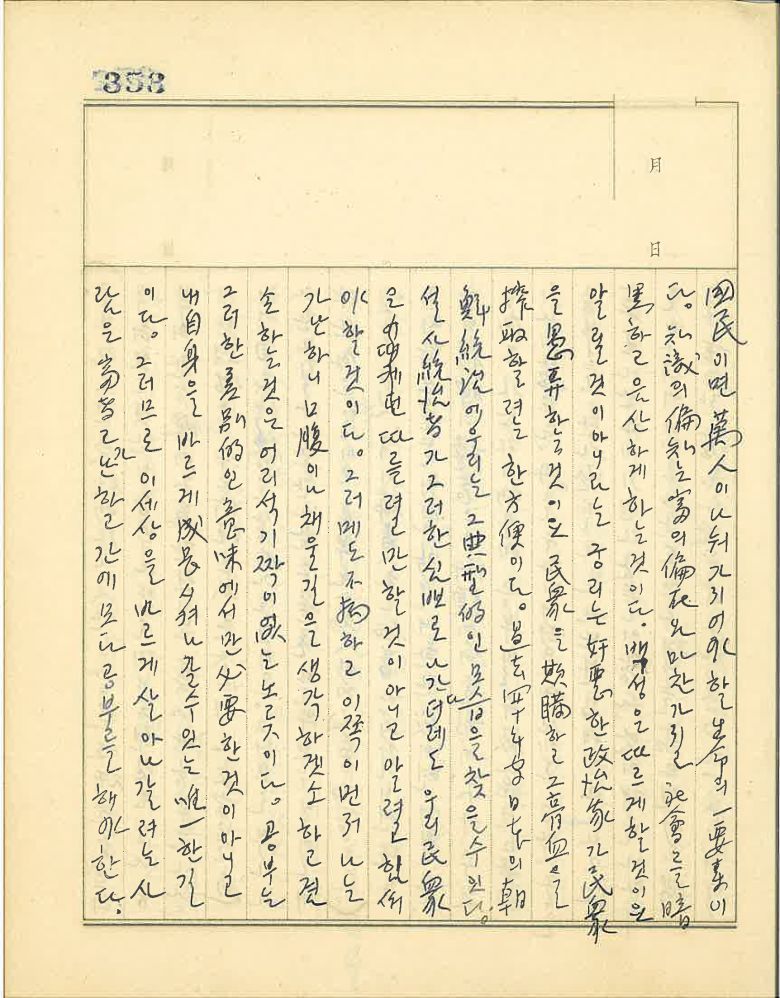 353
月
日
國民이면 萬人이 나눠가지어야 할 生命의 一要素이
다. 知識의 偏知는 富의 偏在와 마찬가지로 社會를 暗
黑하고 음산하게 하는 것이다. 백성은 따르게 할 것이요
알릴 것이 아니라는 궁리는 奸惡한 政治家가 民衆
을 愚弄하는 것이요 民衆을 欺瞞하고 그 膏血을
搾取할려는 한 方便이다. 過去 四十年 日本의 朝
鮮統治에 우리는 그 典型的인 모습을 찾을 수 있다.
설사 統治者가 그러한 심뽀로 나간다더래도 우리 民衆
은 어떻게던 따를려고만 할 것이 아니고 알려고 힘써
야 할 것이다. 그러메도 不拘하고 이쪽이 먼저 나는
가난하니 口腹이나 채울길을 생각하겟소 하고 결
손하는 것은 어리석기 짝이 없는 노릇이다. 공부는
그러한 差別的인 意味에서만 必要한 것이 아니고
내 自身을 바르게 成長시켜 나갈 수 있는 唯一한 길
이다. 그러므로 이 세상을 바르게 살아 나갈려는 사
람은 富者고 가난하고 간에 모다 공부를 해야 한다.